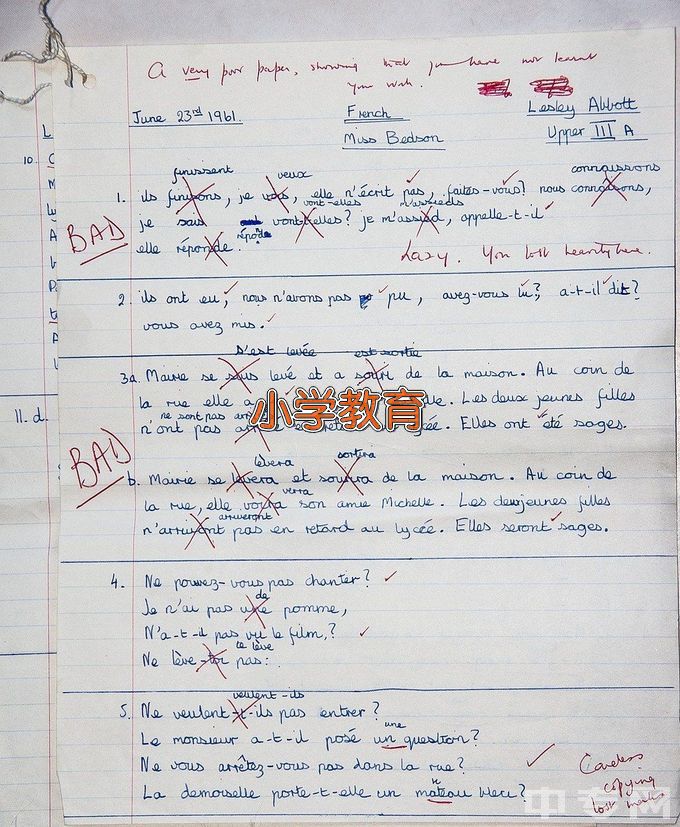 A very poor paper, showing that you have not learnt
your work.
June 23rd 1961.
French
Lesley Abbott
Miss Bedson
Upper III A
finissent veux connaissons
1. ils finirons, je vois, elle n'écrit pas, faites-vous? nous connaisons,
vont-elles m'assieds
BAD
je sais vont-elles? je m'assied, appelle-t-il
répond
elle réponde.
Lazy. You lost
2. ils ont eu, nous n'avons pas pu, avez-vous lu?, a-t-il dit?
vous avez mis.
s'est levée est sortie
3a. Mairie se levé et a de la maison. Au coin de
la rue elle a Les deux jeunes filles
ne sont pas
小学教育
n'ont pas Elles ont été sages.
BAD
lèvera sortira
b. Mairie se leverá et de la maison. Au coin de
verra
la rue, elle son amie Michelle. Les deux jeunes filles
arriveront
pas en retard au lycée. Elles seront sages.
4. Ne pouvez-vous pas chanter?
de
Je n'ai pas une pomme,
N'a-t-il pas vu le film,?
te lève
Ne lève-toi pas:.
veulent-ils
5. Ne veulent-t-ils pas entrer?
une
Le monsieur a-t-il posé un question?
Ne vous arrêtez-vous pas dans la rue?
La demoiselle porte-t-elle un mateau bleu?
Careless
copying
lost marks
10.
11. d.
中专网